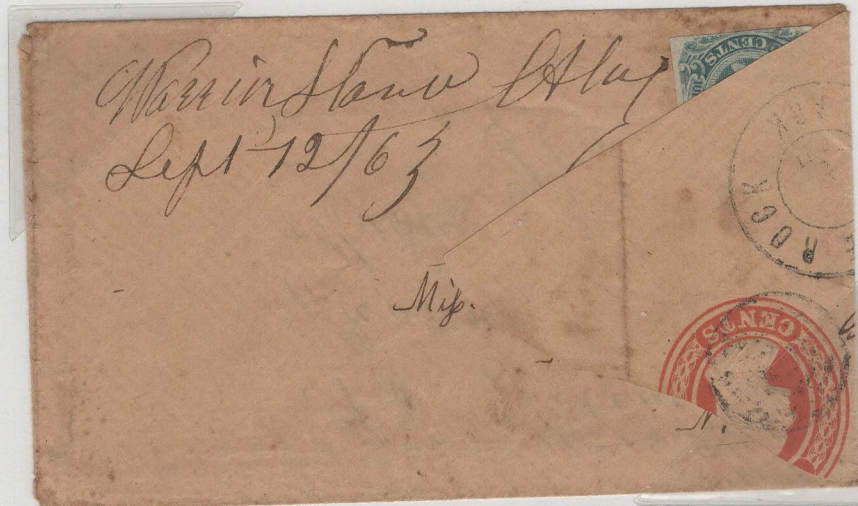 Warrior Stand Ala
Sept 12/63
CENTS
ROCK
ARK
Miſs.
CENTS
N.